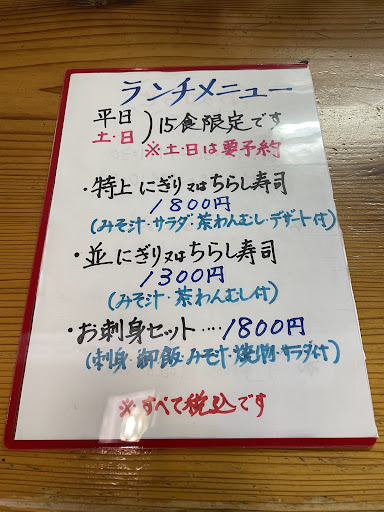 ランチメニュー
平日
土・日 ) 15食限定です
※土・日は要予約
・特上 にぎり又はちらし寿司
1800円
(みそ汁・サラダ・茶わんむし・デザート付)
・並 にぎり又はちらし寿司
1300円
(みそ汁・茶わんむし付)
・お刺身セット‥‥1800円
(刺身・御飯・みそ汁・焼物・サラダ付)
※すべて税込です